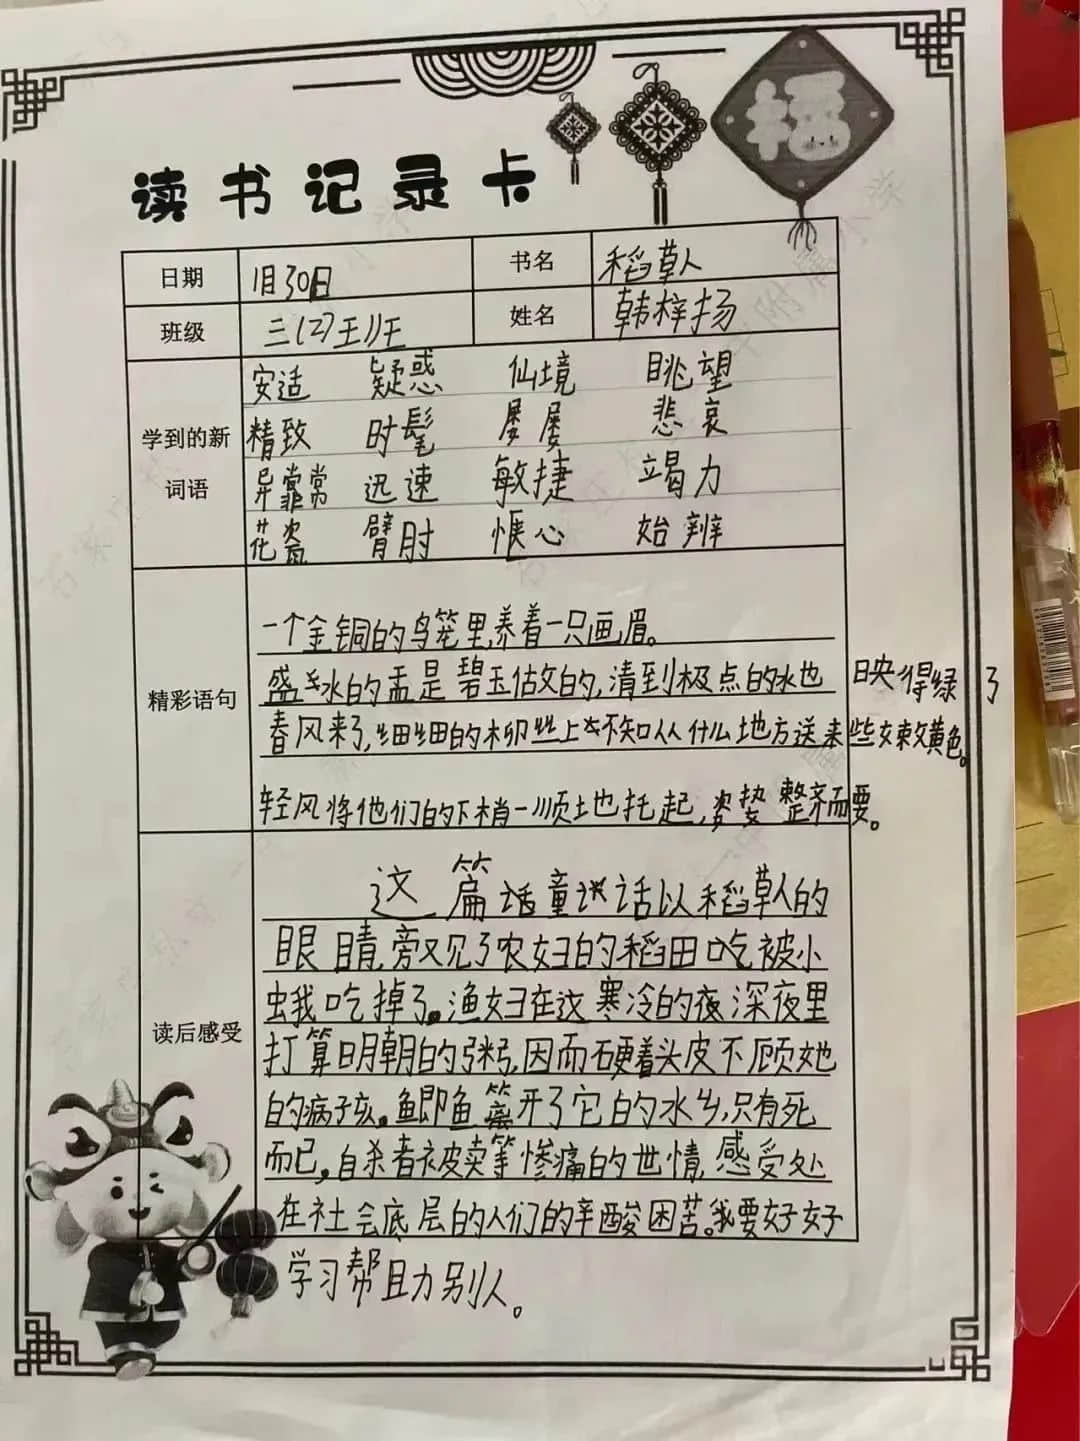 福
读书记录卡
日期 1月30日 书名 稻草人
班级 三(2)王川王 姓名 韩梓扬
学到的新词语
安适 疑惑 仙境 眺望
精致 时髦 屡屡 悲哀
异靠常 迅速 敏捷 竭力
花瓮 臂肘 惬心 始辨
精彩语句
一个金铜的鸟笼里养着一只画眉。
盛水的盂是碧玉做的,清到极点的水也映得绿了
春风来了,细细的柳丝上不知从什么地方送来些嫩黄色。
轻风将他们的下梢一顺地托起,姿势整齐而要。
读后感受
这篇童话以稻草人的
眼睛,旁又见了农妇的稻田吃被小
虫我吃掉了。渔妇在这寒冷的夜深夜里
打算明朝的粥,因而硬着头皮不顾她
的病子孩。鱼即鱼离开了它的水乡,只有死
而已,自杀者被卖等惨痛的世情,感受处
在社会底层的人们的辛酸困苦。我要好好
学习帮助别人。